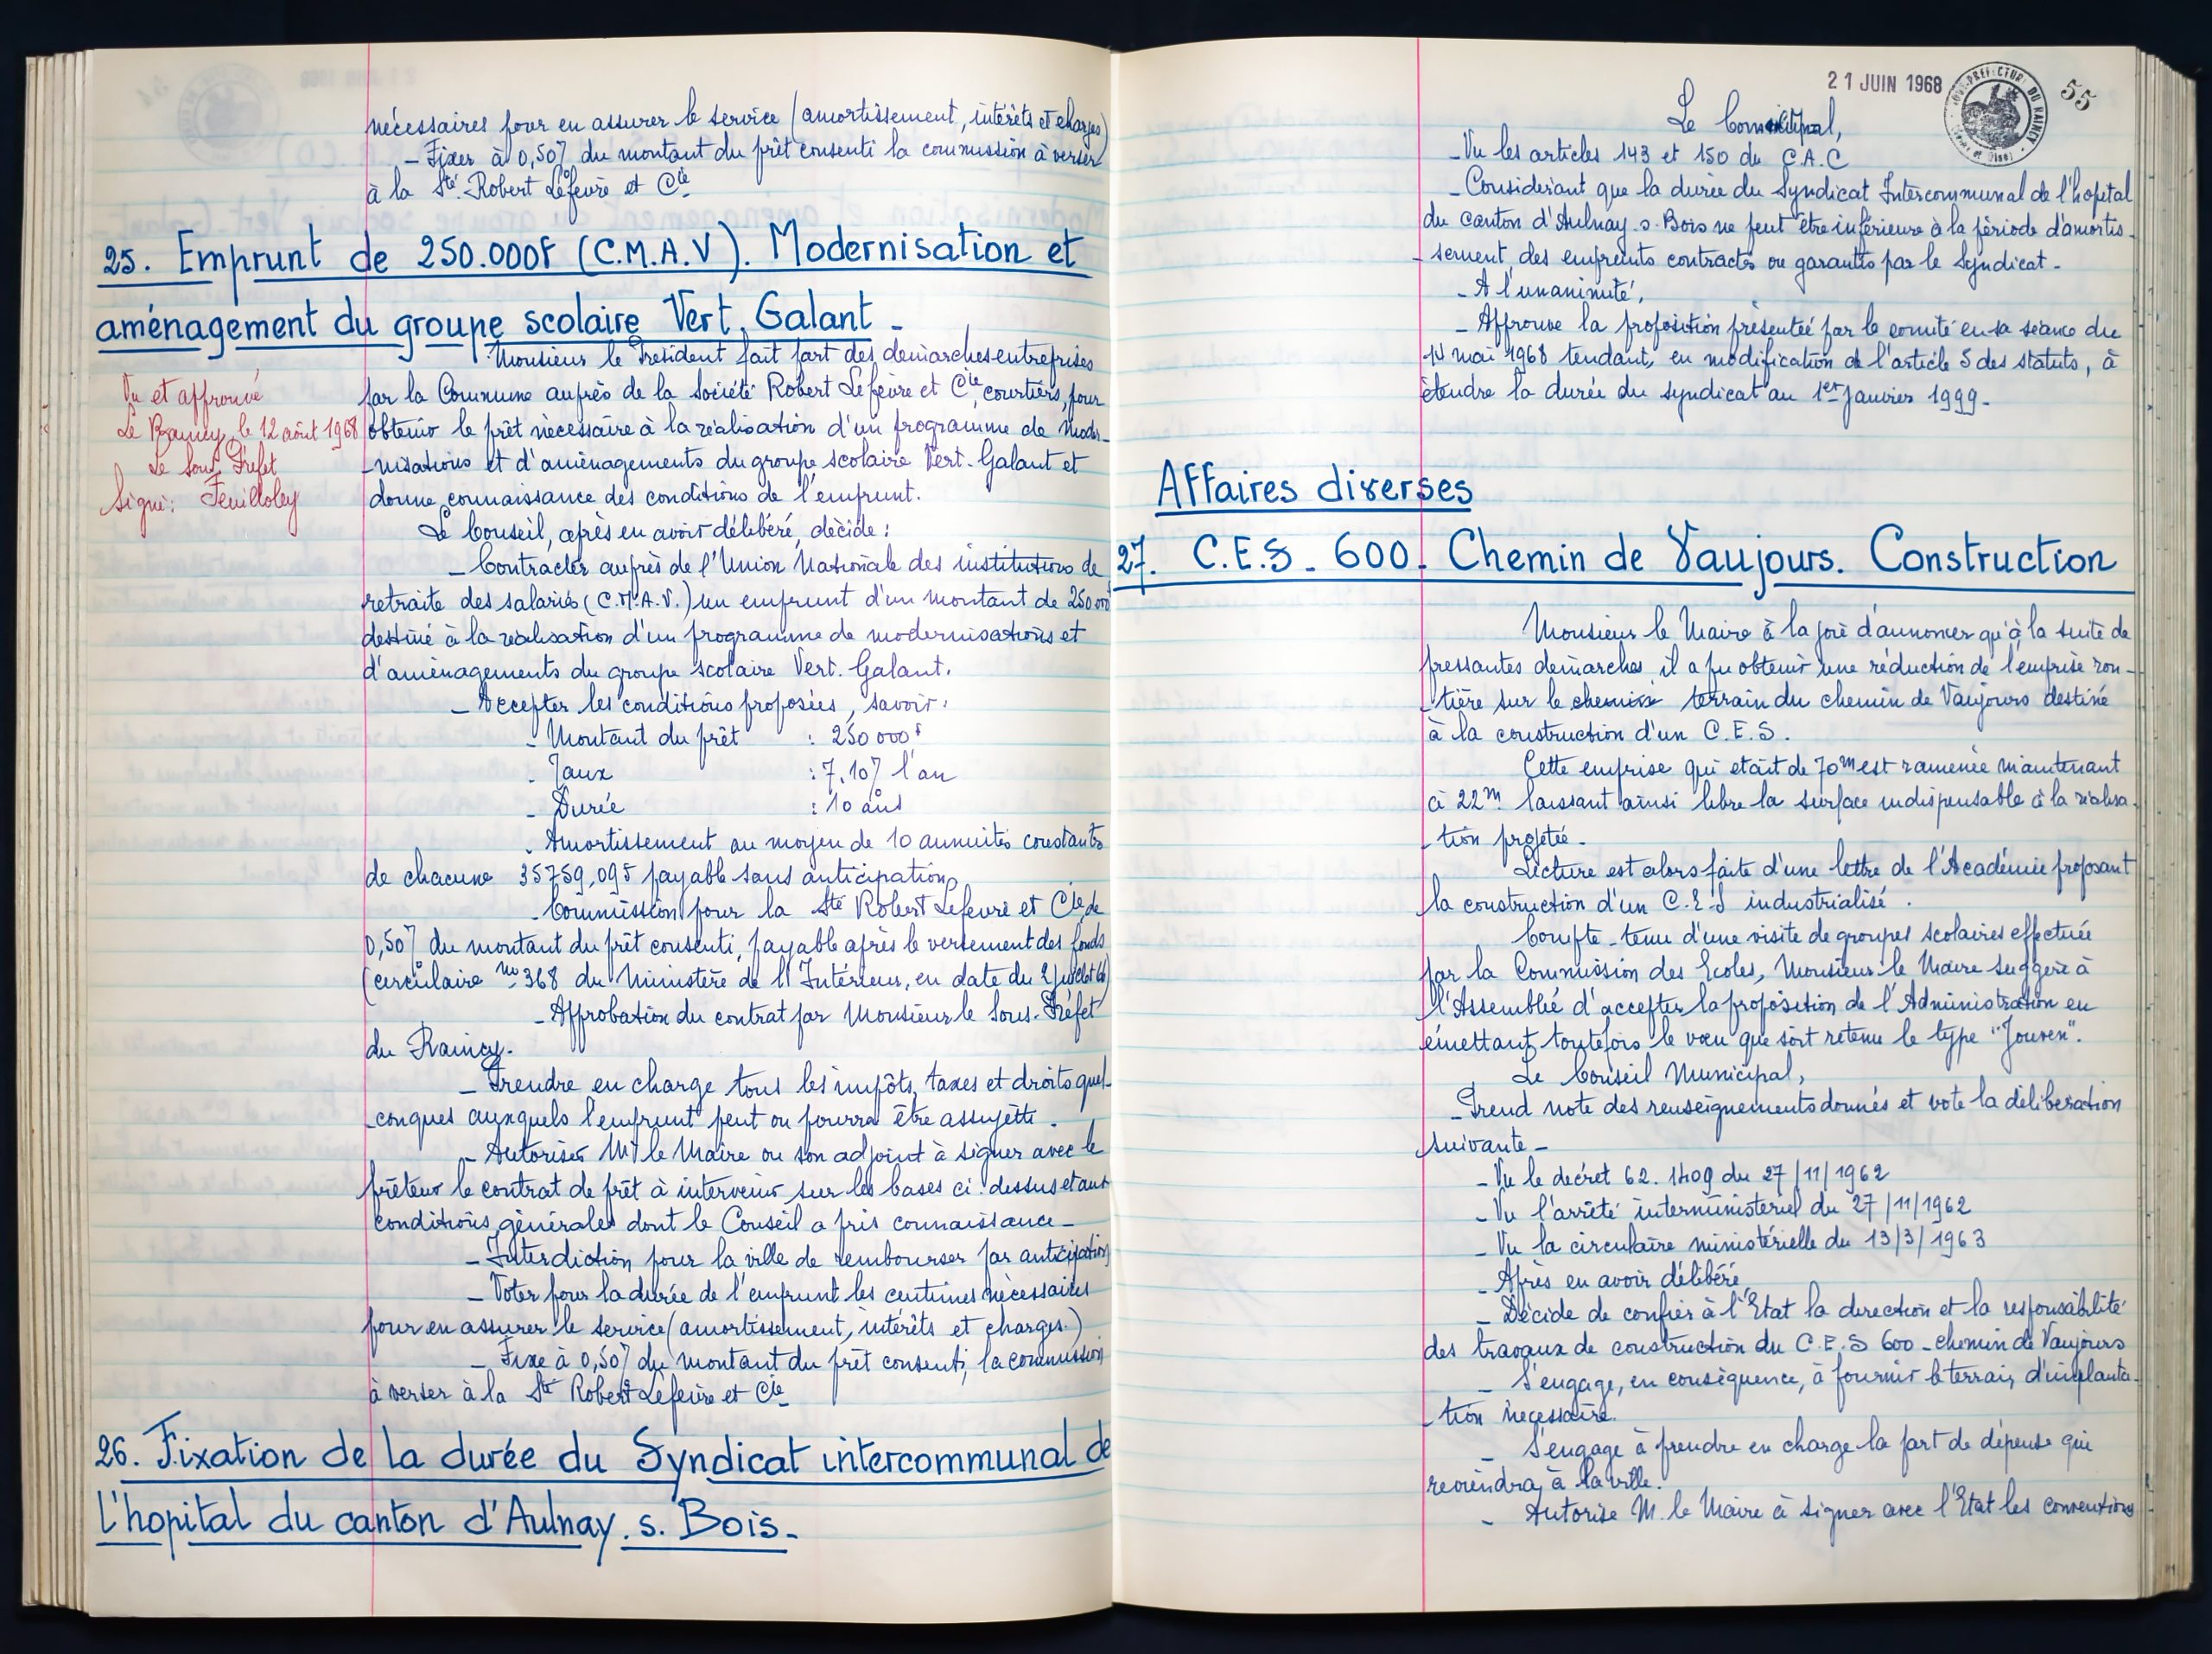 nécessaires pour en assurer le service (amortissement, intérêts et charges)
- Fixer à 0,50% du montant du prêt consenti la commission à verser
à la Sté Robert Lefèvre et Cie
25. Emprunt de 250.000F (C.M.A.V). Modernisation et
aménagement du groupe scolaire Vert. Galant -
Monsieur le Président fait part des démarches entreprises
par la Commune auprès de la société Robert Lefèvre et Cie, courtiers, pour
obtenir le prêt nécessaire à la réalisation d'un programme de moder-
-nisations et d'aménagements du groupe scolaire Vert-Galant et
donne connaissance des conditions de l'emprunt.
Vu et approuvé
Le Raincy, le 12 août 1968
Le Sous Préfet
Signé: Feuilloley
Le Conseil, après en avoir délibéré, décide:
- Contracter auprès de l'Union Nationale des institutions de
retraite des salariés (C.M.A.V.) un emprunt d'un montant de 250 000F
destiné à la réalisation d'un programme de modernisations et
d'aménagements du groupe scolaire Vert. Galant.
- Accepter les conditions proposées, savoir:
- Montant du prêt : 250 000F
- Taux : 7,10% l'an
- Durée : 10 ans
- Amortissement au moyen de 10 annuités constantes
de chacune 35759,09F payable sans anticipation
- Commission pour la Sté Robert Lefevre et Cie de
0,50% du montant du prêt consenti, payable après le versement des fonds
(circulaire No 368 du Ministère de l'Intérieur, en date du 2 juillet
- Approbation du contrat par Monsieur le Sous-Préfet
du Raincy.
- Prendre en charge tous les impôts, taxes et droits quel-
-conques auxquels l'emprunt peut ou pourra être assujetti.
- Autoriser Mr le Maire ou son adjoint à signer avec le
prêteur le contrat de prêt à intervenir sur les bases ci-dessus et aux
conditions générales dont le Conseil a pris connaissance -
- Interdiction pour la ville de rembourser par anticipation
- Voter pour la durée de l'emprunt les centimes nécessaires
pour en assurer le service (amortissement, intérêts et charges.)
- Fixe à 0,50% du montant du prêt consenti, la commission
à verser à la Sté Robert Lefèvre et Cie
26. Fixation de la durée du Syndicat intercommunal de
l'hopital du canton d'Aulnay. s. Bois.
21 JUIN 1968
55
SOUS-PRÉFECTURE DU RAINCY
Le
- Vu les articles 143 et 150 du C.A.C
- Considérant que la durée du Syndicat Intercommunal de l'hopital
du canton d'Aulnay. s. Bois ne peut être inférieure à la période d'amortis-
- sement des emprunts contractés ou garantis par le Syndicat -
- A l'unanimité,
- Approuve la proposition présentée par le comité en sa séance du
mai 1968 tendant, en modification de l'article 5 des statuts, à
étendre la durée du syndicat au 1er Janvier 1999 -
Affaires diverses
27. C.E.S - 600. Chemin de Vaujours. Construction
Monsieur le Maire à la joie d'annoncer qu'à la suite de
pressantes démarches, il a pu obtenir une réduction de l'emprise rou-
- tière sur le chemin terrain du chemin de Vaujours destiné
à la construction d'un C.E.S.
Cette emprise qui était de 70m est ramenée maintenant
à 22m laissant ainsi libre la surface indispensable à la réalisa-
- tion projetée -
Lecture est alors faite d'une lettre de l'Académie proposant
la construction d'un C.E.S industrialisé.
Compte-tenu d'une visite de groupes scolaires effectuée
par la Commission des Ecoles, Monsieur le Maire suggère à
l'Assemblée d'accepter la proposition de l'Administration en
émettant toutefois le voeu que soit retenu le type "Jouven".
Le Conseil Municipal,
- Prend note des renseignements donnés et vote la délibération
suivante -
- Vu le décret 62. 1409 du 27/11/1962
- Vu l'arrêté interministériel du 27/11/1962
- Vu la circulaire ministérielle du 13/3/1963
- Après en avoir délibéré
- Décide de confier à l'Etat la direction et la responsabilité
des travaux de construction du C.E.S 600 - chemin de Vaujours
- S'engage, en conséquence, à fournir le terrain d'implanta-
- tion nécessaire.
- S'engage à prendre en charge la part de dépense qui
reviendra à la ville.
- Autorise M. le Maire à signer avec l'Etat les conventions